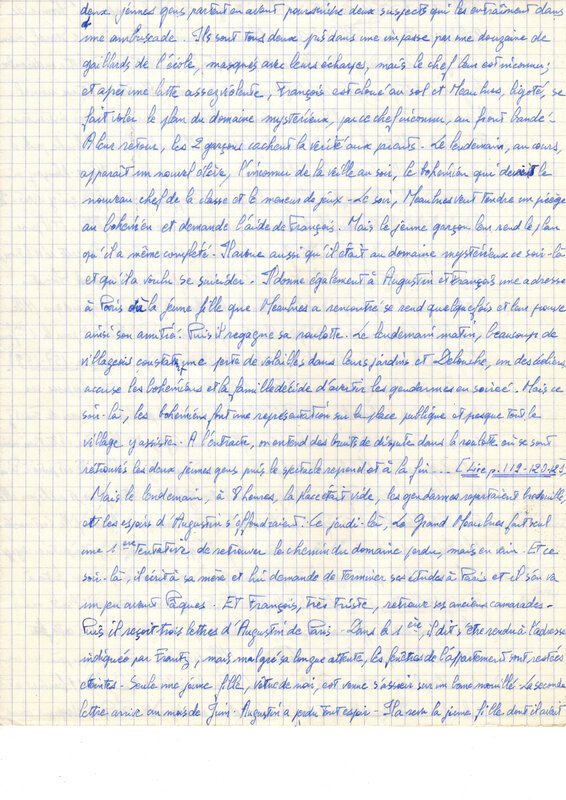 deux jeunes gens partent en avant poursuivre deux suspects qui les entraînent dans
une ambuscade. Ils sont tous deux pris dans une impasse par une douzaine de
gaillards de l'école, masqués avec leurs écharpes, mais le chef leur est inconnu;
et après une lutte assez violente, François est cloué au sol et Meaulnes, ligoté, se
fait voler le plan du domaine mystérieux, par ce chef inconnu, au front bandé.
A leur retour, les 2 garçons cachent la vérité aux parents. Le lendemain, au cours,
apparaît un nouvel élève, l'inconnu de la veille au soir, le bohémien qui devient le
nouveau chef de la classe et le meneur de jeux. Le soir, Meaulnes veut tendre un piège
au bohémien et demande l'aide de François. Mais le jeune garçon leur rend le plan
qu'il a même complété. Il avoue aussi qu'il était au domaine mystérieux ce soir-là
et qu'il a voulu se suicider. Il donne également à Augustin et François une adresse
à Paris où la jeune fille que Meaulnes a rencontré se rend quelquefois et leur prouve
ainsi son amitié. Puis il regagne sa roulotte. Le lendemain matin, beaucoup de
villageois constatent une perte de volailles dans leurs jardins et Delouche, un des écoliers,
accuse les bohémiens et la famille décide d'avertir les gendarmes en soirée. Mais ce
soir-là, les bohémiens font une représentation sur la place publique et presque tout le
village y assiste. A l'entracte, on entend des bruits de dispute dans la roulotte où se sont
retrouvés les deux jeunes gens puis le spectacle reprend et à la fin... [Lire p. 119-120-121]
Mais le lendemain, à 8 heures, la place était vide, les gendarmes repartaient bredouille,
et les espoirs d'Augustin s'effondraient. Ce jeudi-là, Le Grand Meaulnes fait seul
une 1ère tentative de retrouver le chemin du domaine perdu, mais en vain. Et ce
soir-là, il écrit à sa mère et lui demande de terminer ses études à Paris et il s'en va
un peu avant Pâques. Et François, très triste, retrouve ses anciens camarades.
Puis il reçoit trois lettres d'Augustin de Paris. Dans la 1ère, il dit s'être rendu à l'adresse
indiquée par Frantz, mais malgré sa longue attente, les fenêtres de l'appartement sont restées
éteintes. Seule une jeune fille, vêtue de noir, est venue s'asseoir sur un banc mouillé. La seconde
lettre arrive au mois de Juin. Augustin a perdu tout espoir. Il a revu la jeune fille dont il avait